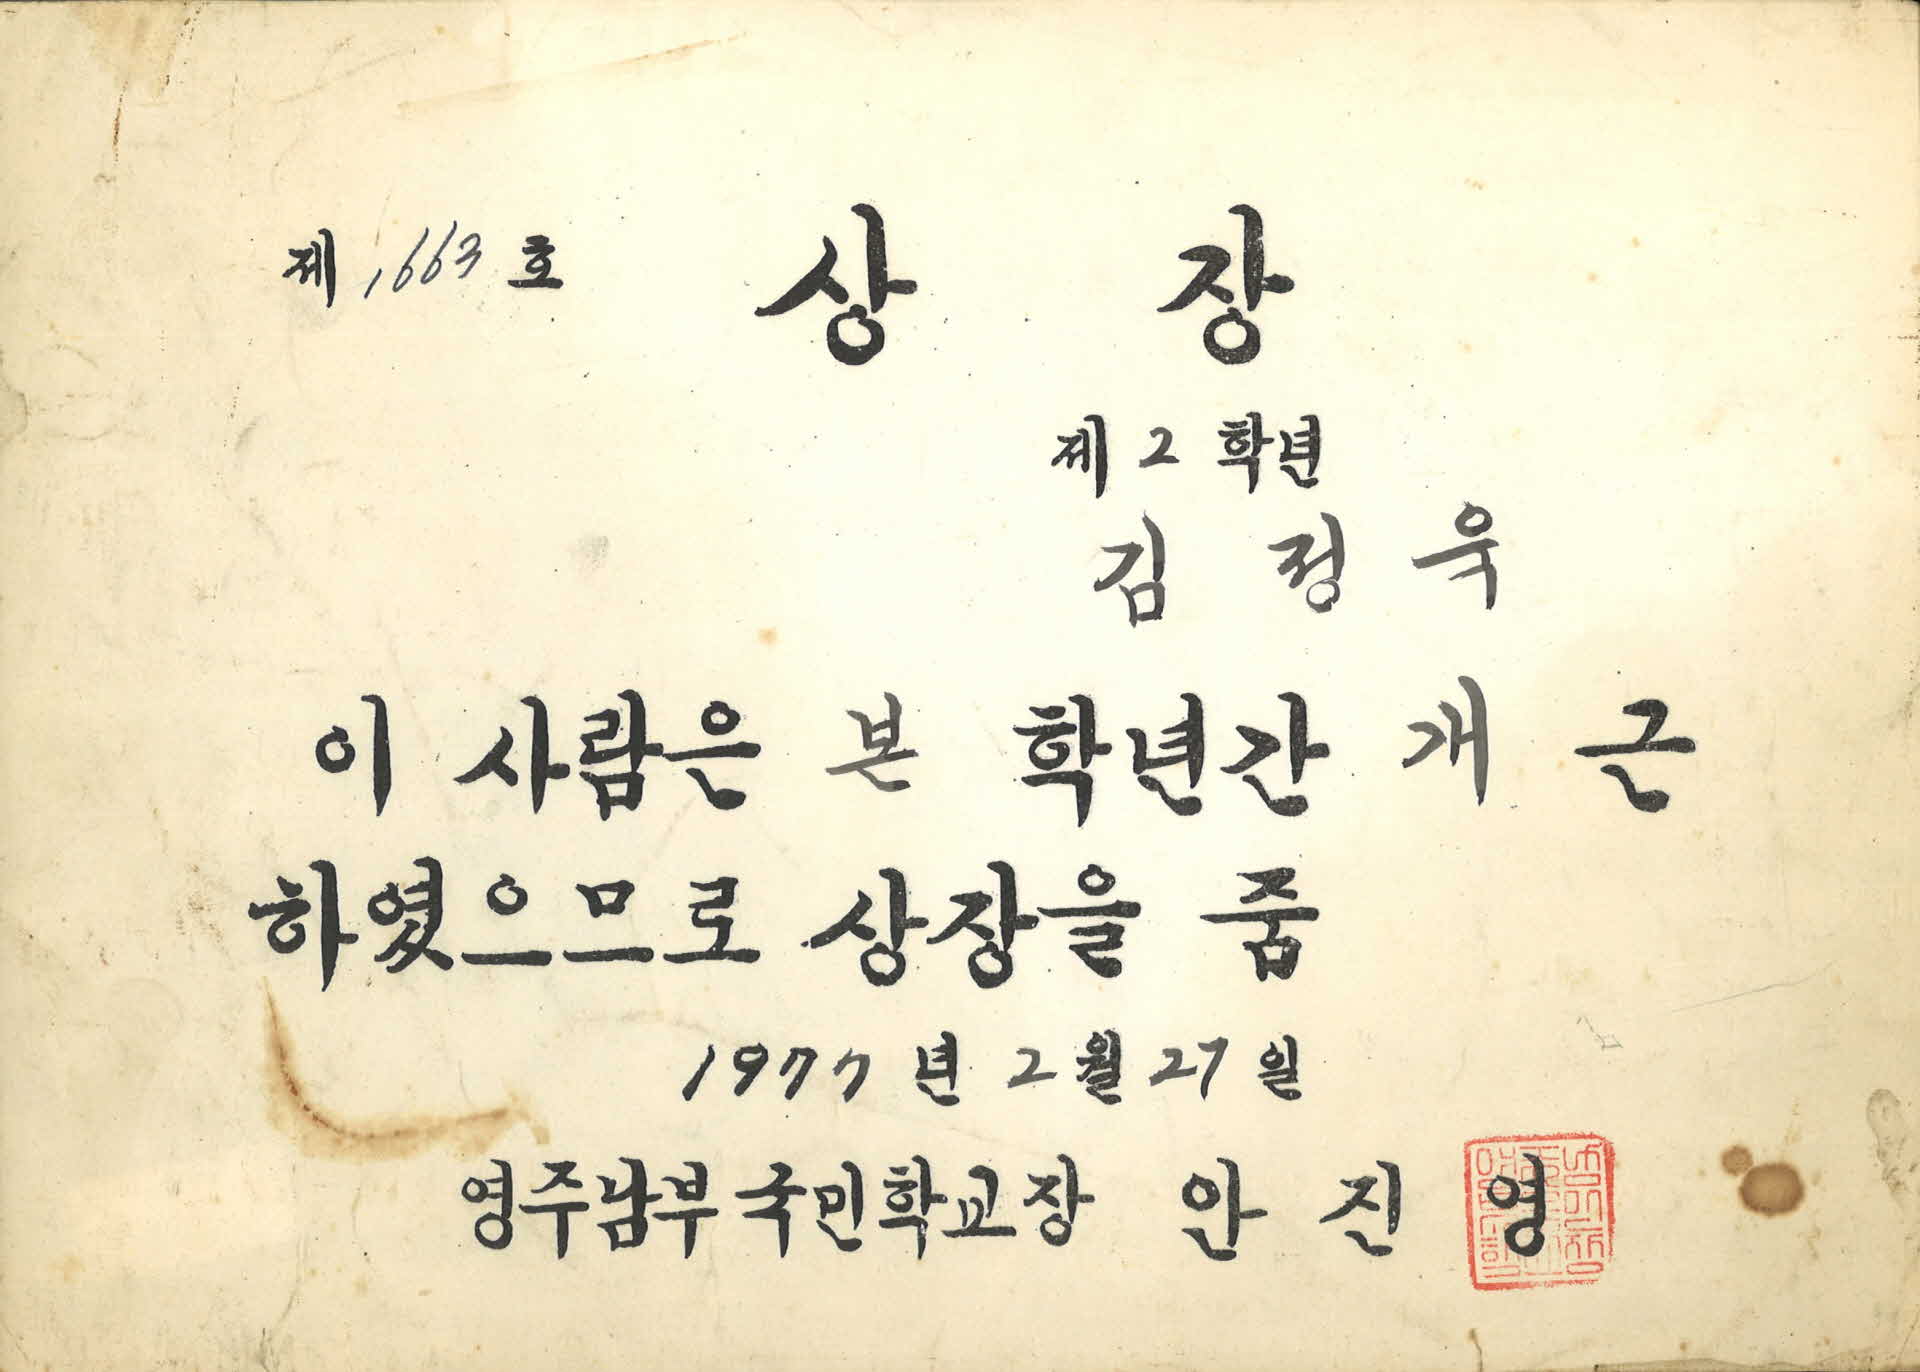 제 1663 호
상 장
제 2 학년
김 정 욱
이 사람은 본 학년간 개 근
하였으므로 상장을 줌
1977 년 2 월 27 일
영주남부국민학교장 안 진 영